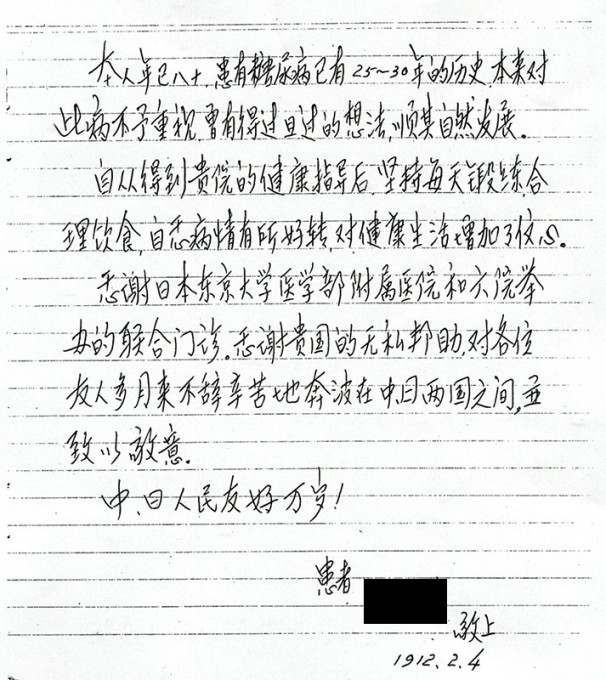 本人年已八十,患有糖尿病已有25~30年的历史,本来对
此病不予重视,曾有得过且过的想法,顺其自然发展。
自从得到贵院的健康指导后,坚持每天锻练,合
理饮食,自感病情有所好转,对健康生活增加了信心。
感谢日本东京大学医学部附属医院和六院举
办的联合门诊。感谢贵国的无私邦助,对各位
友人多月来不辞辛苦地奔波在中、日两国之间,并
致以敬意。
中、日人民友好万岁!
患者
敬上
1912.2.4